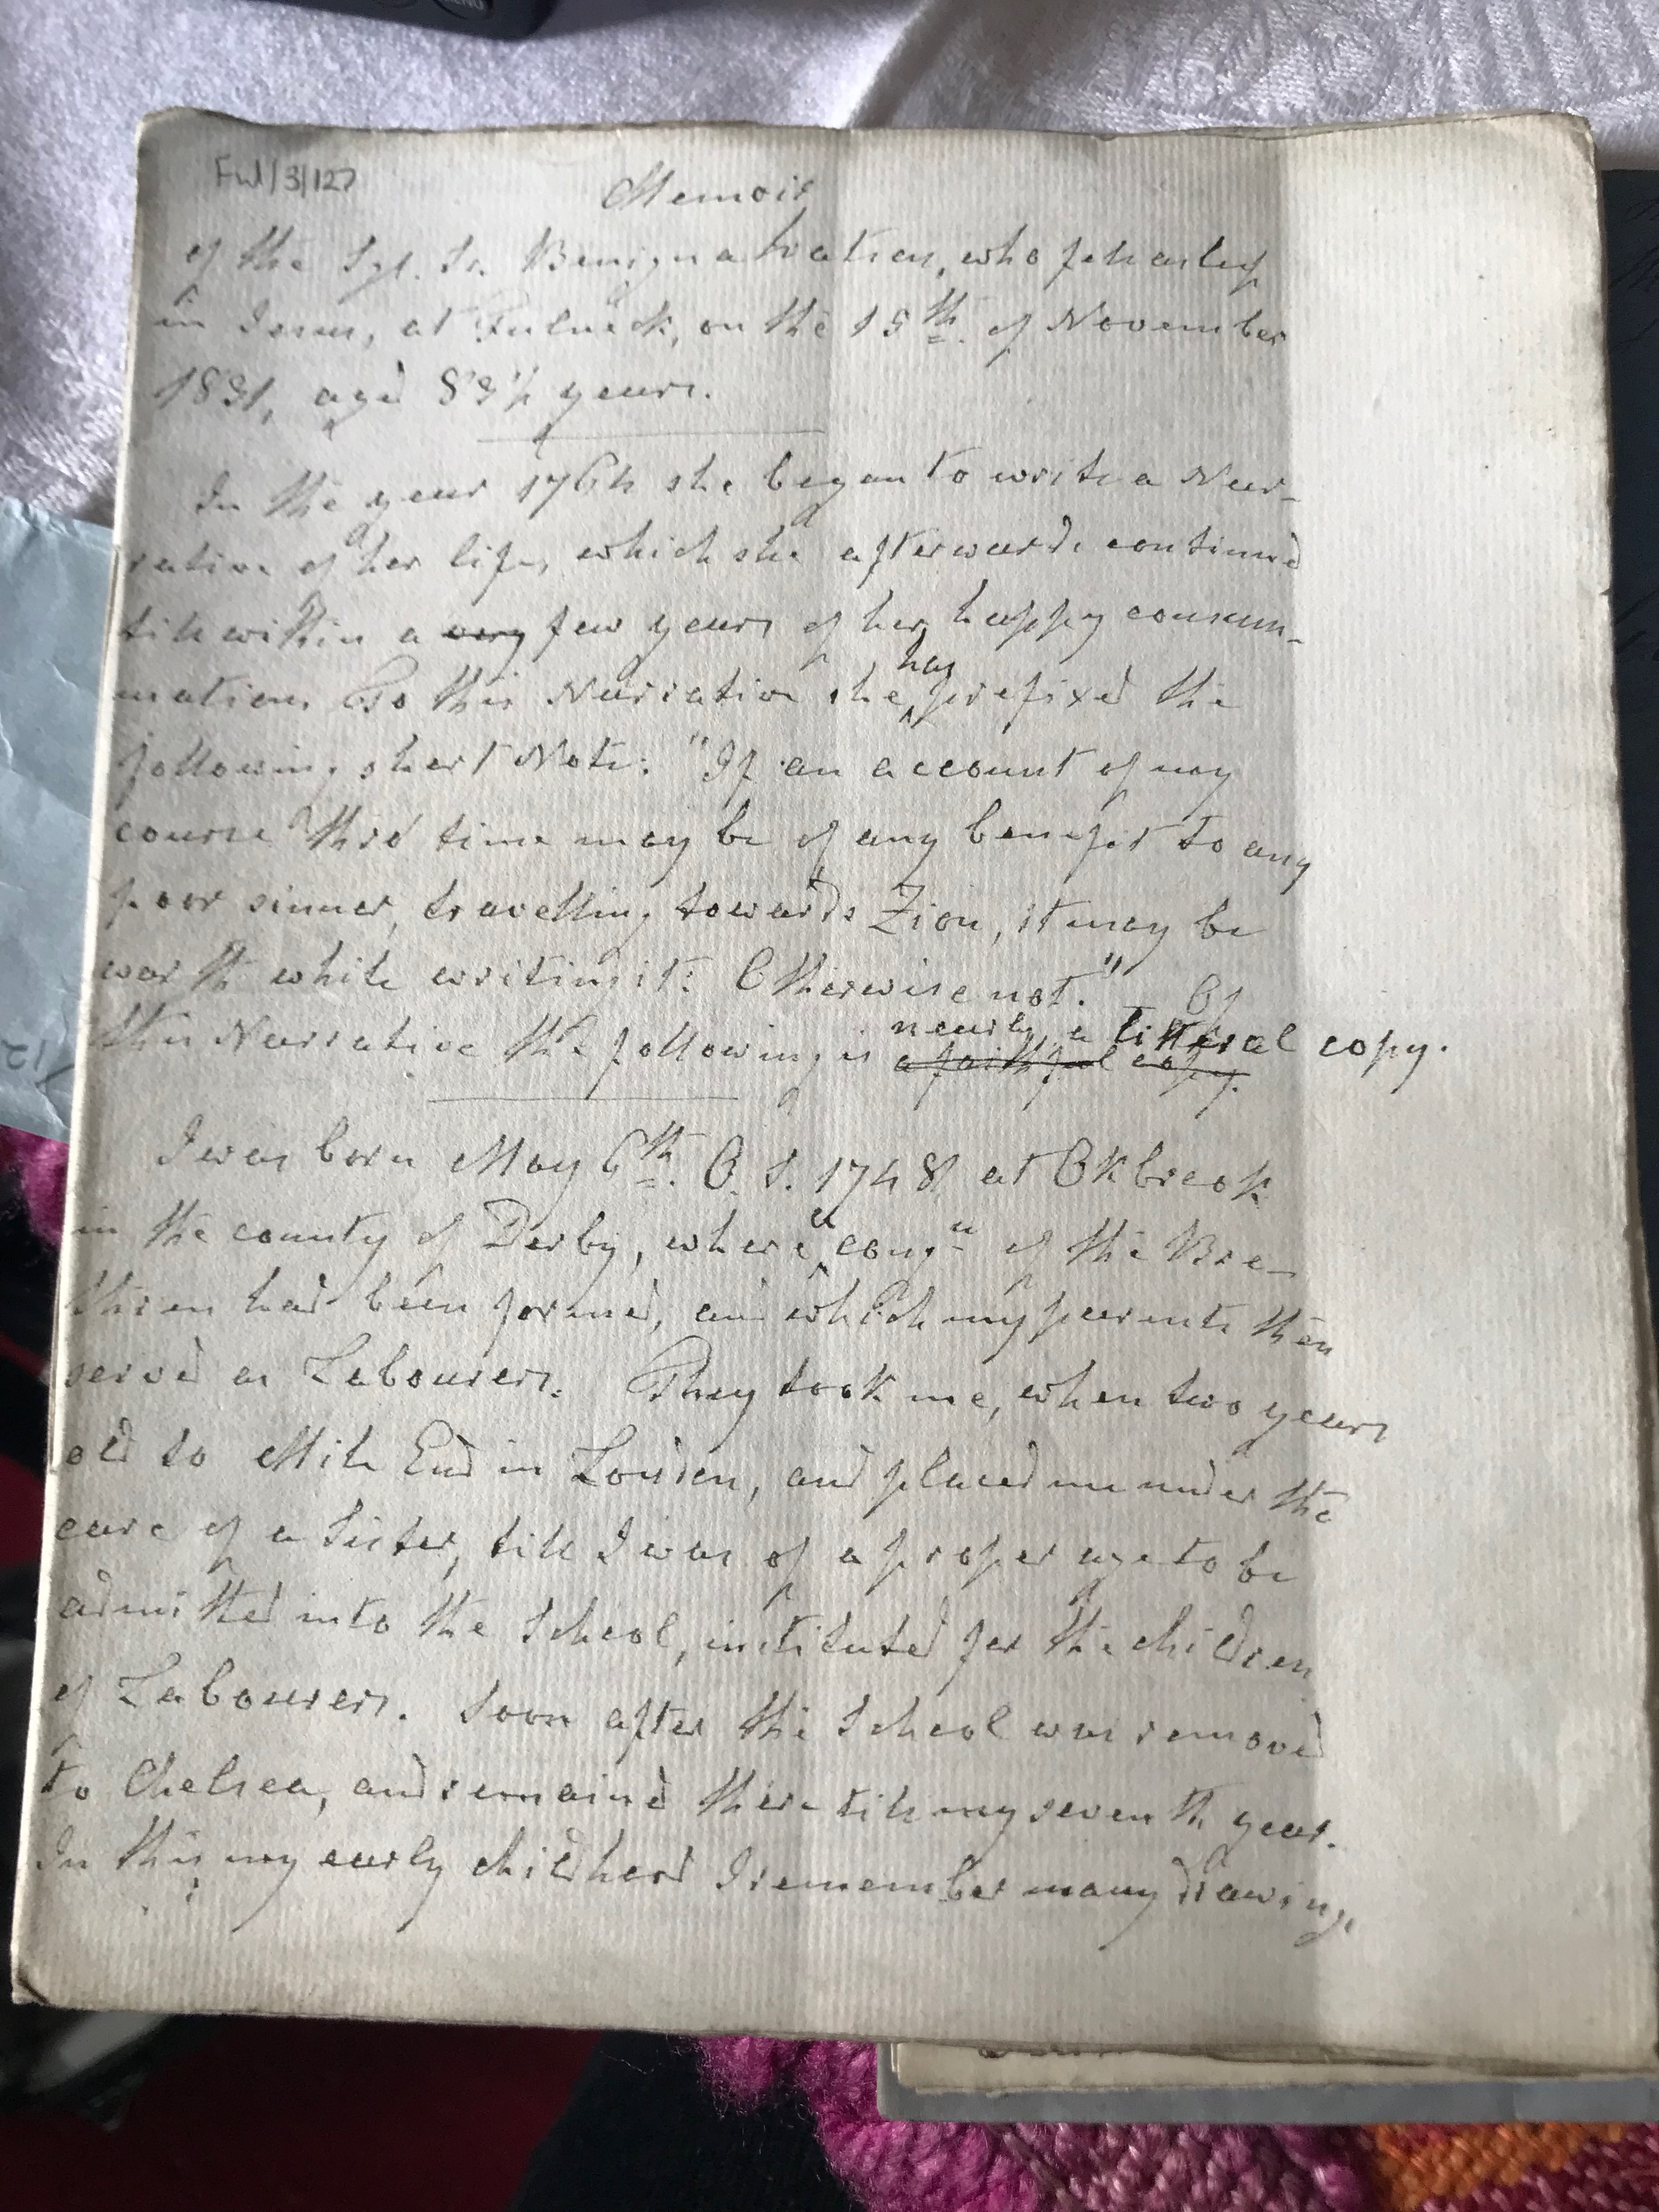 Ful/3/127
Memoir
of the Sgl. Sr. Benigna , who fell asleep
in Jesus, at Fulneck, on the 15th. of November
1831, aged 83½ years.
In the year 1764 she began to write a Nar-
rative of her life, which she afterwards continued
till within a very few years of her happy consum-
mation. To this Narrative she has prefixed the
following short Note: "If an account of my
course thro' time may be of any benefit to any
poor sinner, travelling towards Zion, it may be
worth while writing it: Otherwise not." Of
this Narrative the following is a faithful copy. nearly a litteral copy.
I was born May 6th. O. S. 1748 at Okbrook
in the county of Derby, where a congn of the Bre-
thren had been formed, and which my parents then
served as Labourers. They took me, when two years
old to Mile End in London, and placed me under the
care of a Sister, till I was of a proper age to be
admitted into the School, instituted for the children
of Labourers. Soon after the School was removed
to Chelsea, and remained there till my seventh year.
In this my early childhood I remember many drawings